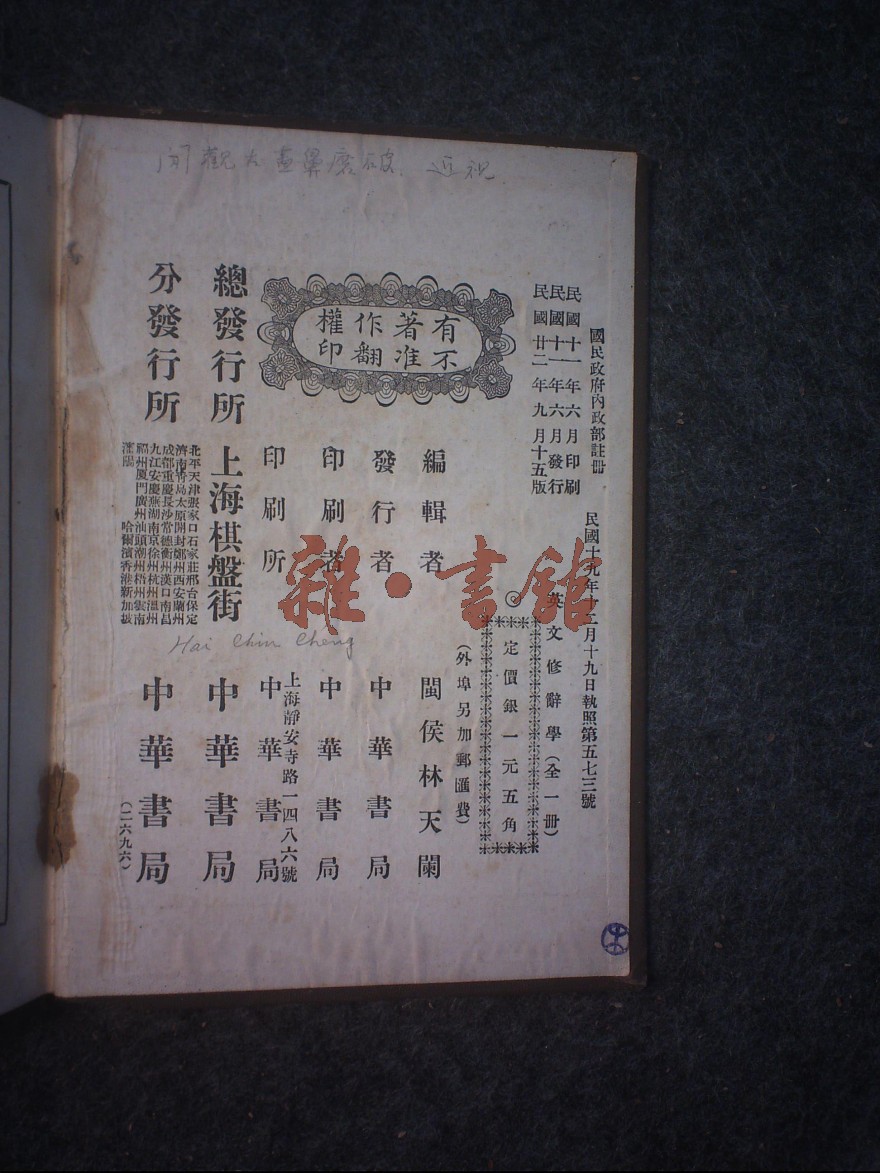 國民政府內政部註冊　民國十九年十二月十九日執照第五七三號
民國十一年六月印刷
民國十一年六月發行
民國廿二年九月十五版
◎英文修辭學(全一冊)
定價銀一元五角
(外埠另加郵匯費)
有著作權
不准翻印
編輯者　閩侯林天蘭
發行者　中華書局
印刷者　中華書局
印刷所　上海靜安寺路一四八六號
中華書局
總發行所　上海棋盤街　中華書局
分發行所
北平天津張家口石家莊邢台保定
濟南青島太原開封鄭州西安蘭州
成都重慶長沙常德衡州漢口南昌
九江安慶蕪湖南京徐州杭州溫州
福州廈門廣州汕頭潮州梧州雲南
瀋陽　哈爾濱香港新加坡
中華書局
(二六九六)
Hai Chin Cheng
雜·書館